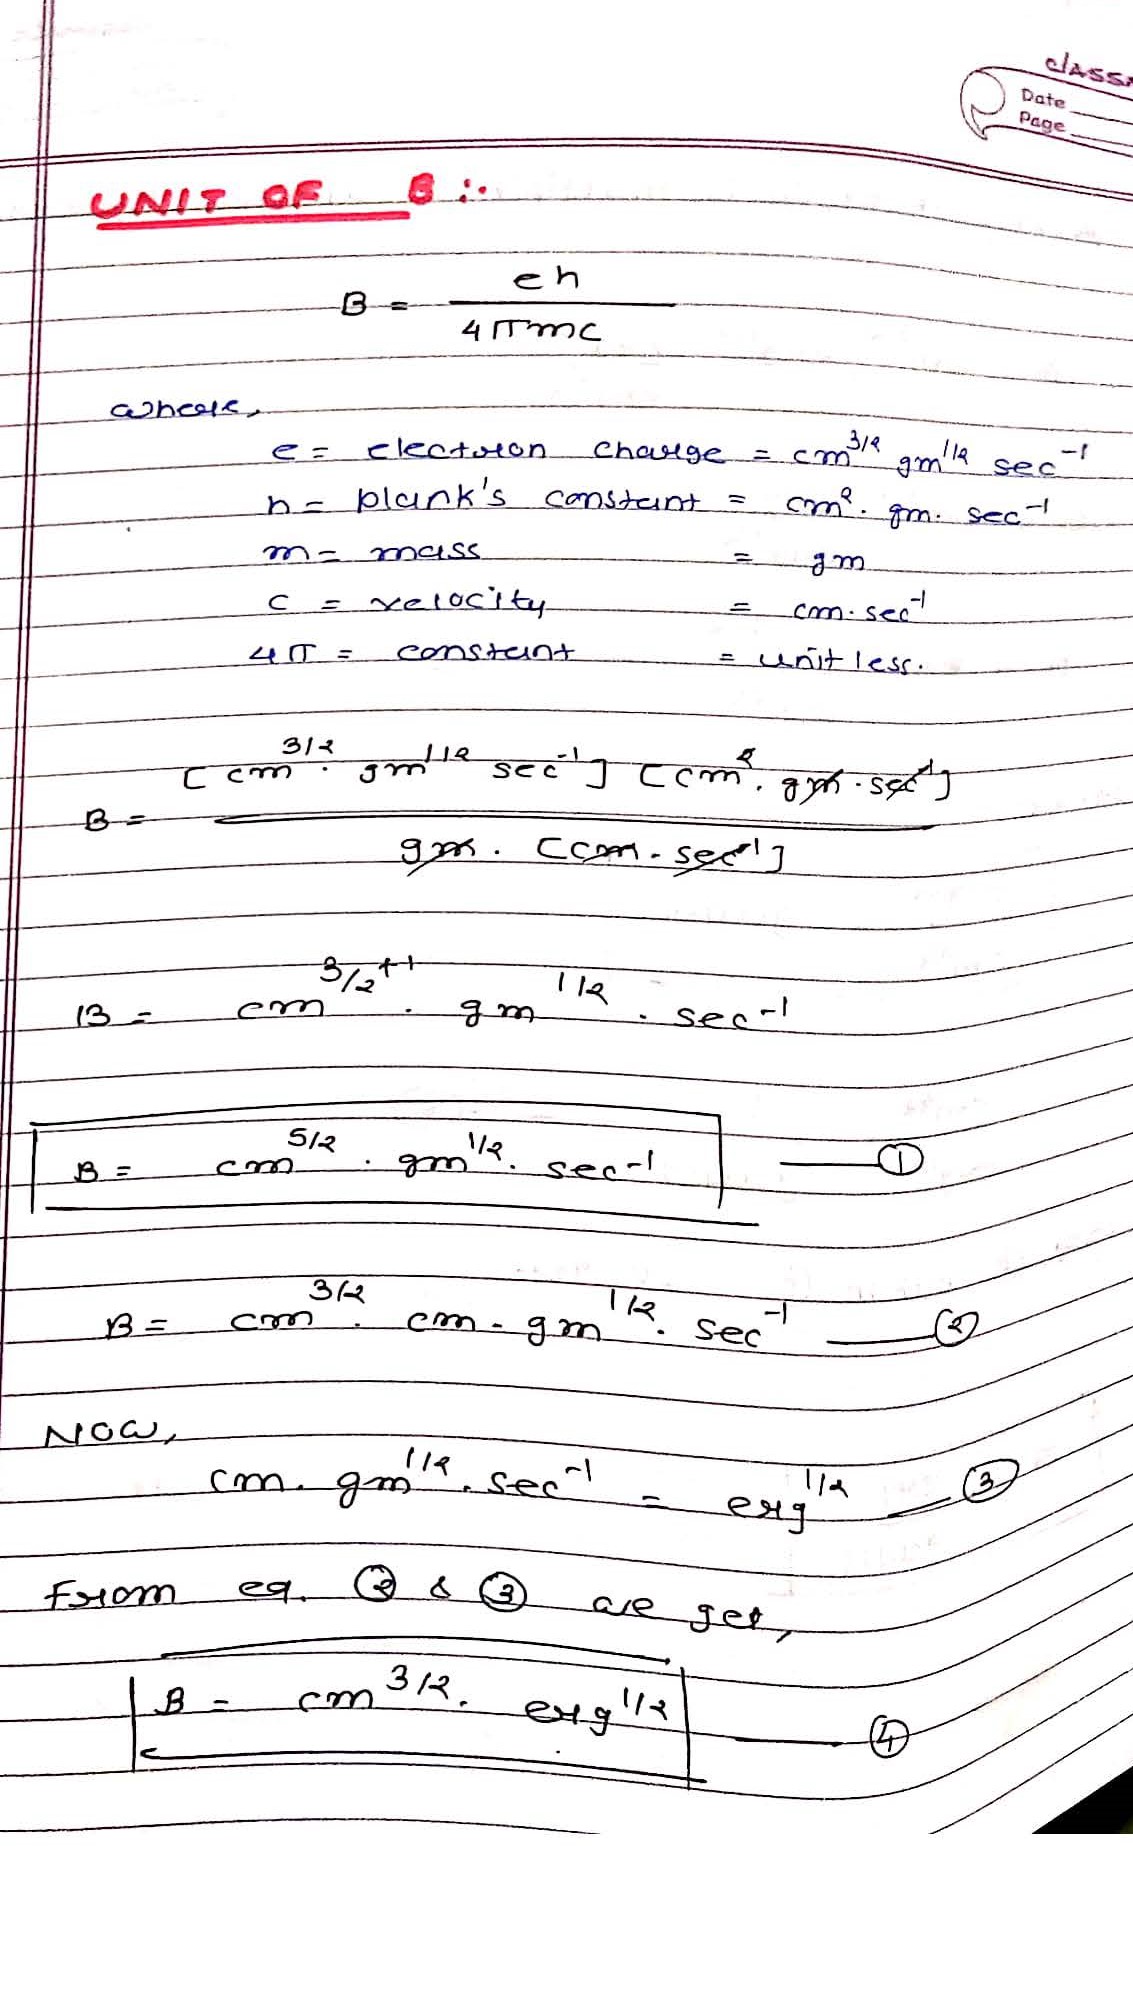 classm
Date
Page
UNIT OF B :-
B = eh / 4πmc
where,
e = electron charge = cm^3/2 gm^1/2 sec^-1
h = plank's constant = cm^2. gm. sec^-1
m = mass = gm
c = velocity = cm. sec^-1
4π = constant = unit less.
B = [cm^3/2. gm^1/2 sec^-1] [cm^2. gm. sec^-1] / gm. [cm. sec^-1]
B = cm^3/2+1 . gm^1/2 . sec^-1
B = cm^5/2 . gm^1/2. sec^-1 — ①
B = cm^3/2. cm. gm^1/2. sec^-1 — ②
Now,
cm. gm^1/2. sec^-1 = erg^1/2 — ③
From eq. ② & ③ we get,
B = cm^3/2. erg^1/2 — ④